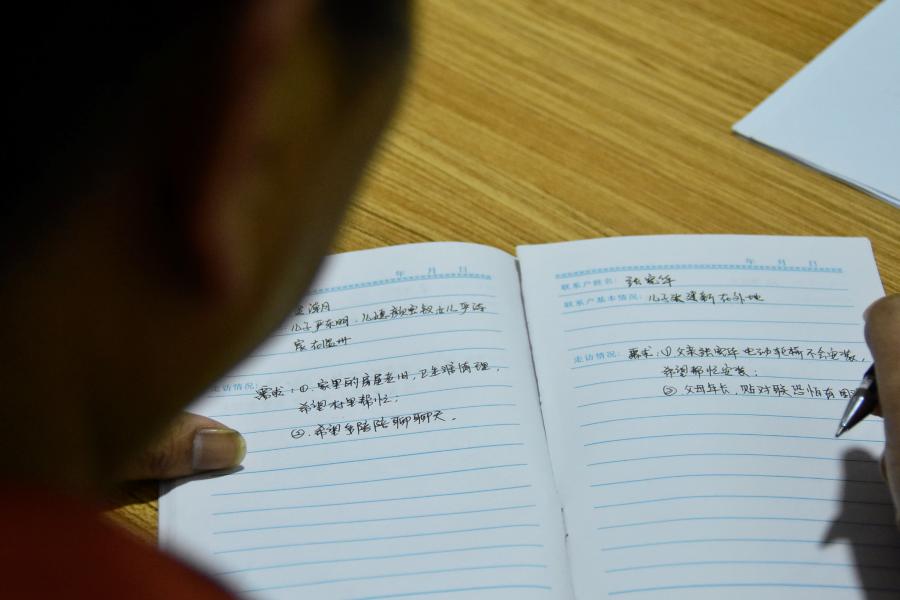 年 月 日
儿子严东明、儿媳颜宏叔、女儿严海
家在温州
走访情况：需求：①、家里的房屋老旧，卫生难清理，
希望村里帮忙；
②、希望多陪陪聊聊天。
年 月 日
联系户姓名：张宏华
联系户基本情况：儿子张建新在外地
走访情况：需求：①父亲张宏华电动轮椅不会安装，
希望帮忙安装；
②父母年长，贴对联恐怕有困